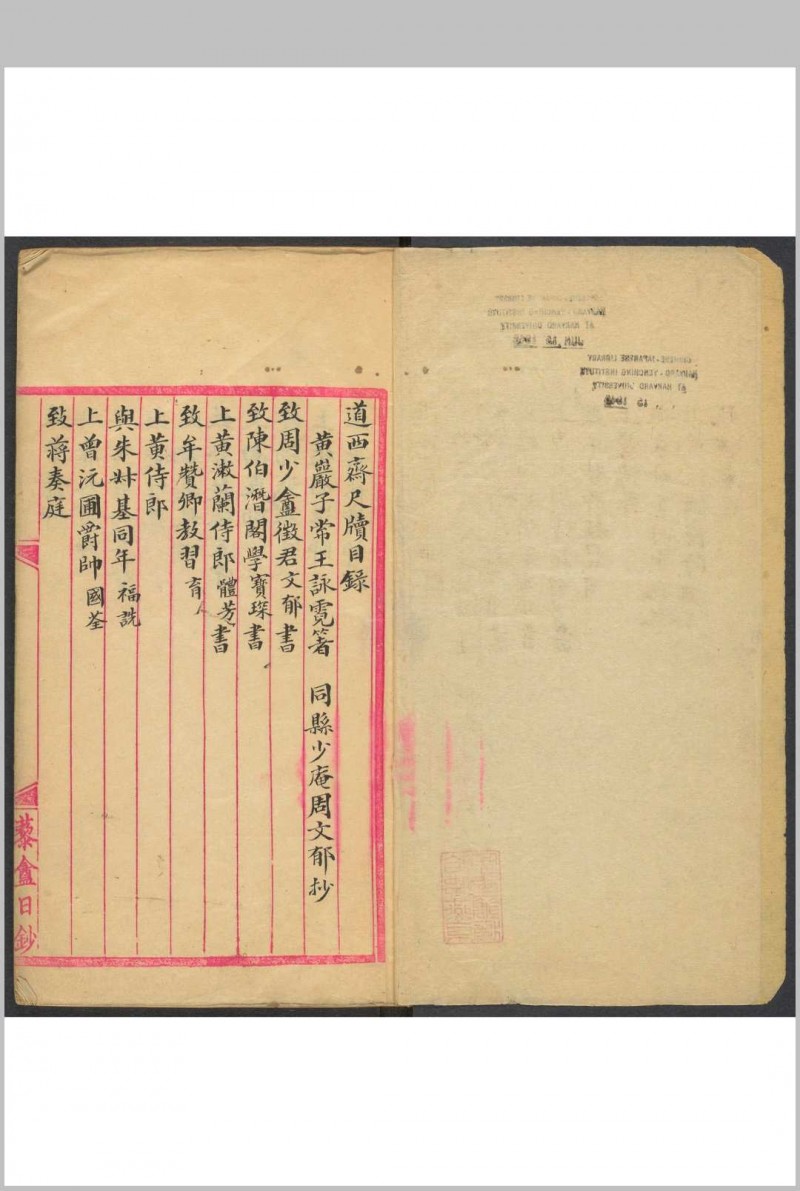 道西齋尺牘目錄
黃巖子常王詠霓箸 同縣少庵周文郁抄
致周少盦徵君文郁書
致陳伯潛閣學寶琛書
上黃漱蘭侍郎體芳書
致牟贊卿教習育
上黃侍郎
與朱尗基同年福詵
上曾沅圃爵帥國荃
致蔣奏庭
藜盦日鈔